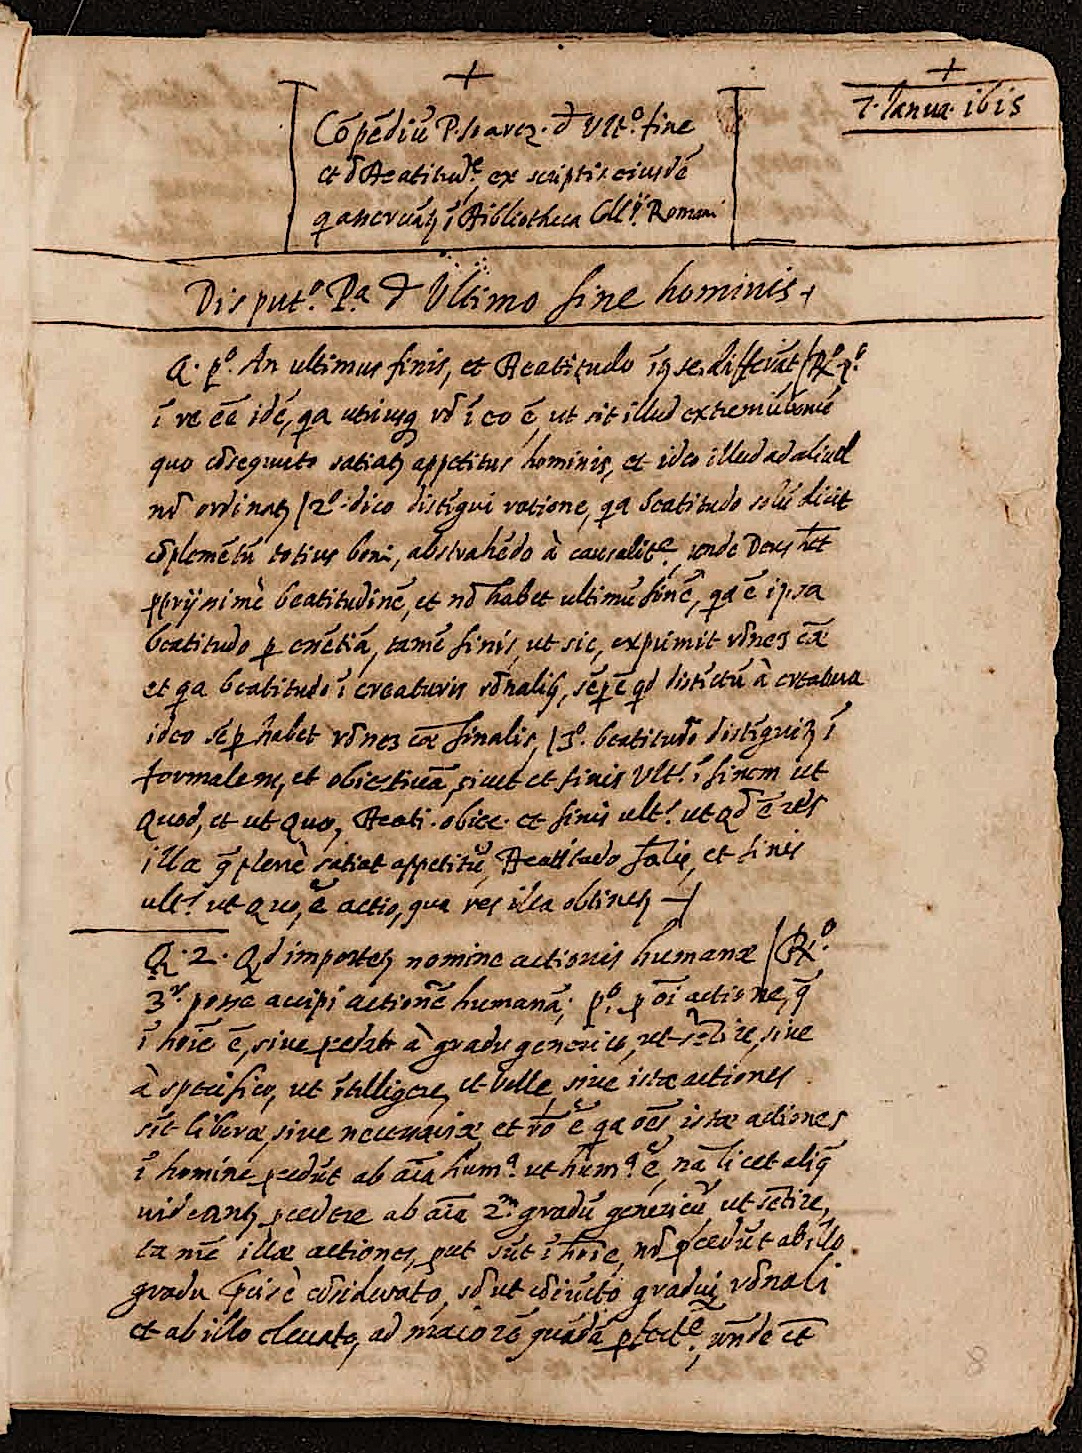 +
+
7. Ianua. 1615
Cōpēdiū P. Soarez. đ Ult.º fine
et đ Beatitudᵉ, ex scriptis eiusdē
q̄ asseruāt̄ ī Bibliotheca Coll.ij Romani
Disput.º P.ª đ Ultimo fine hominis +
Q. pº. An ultimus finis, et Beatitudo īt̄ se differāt / Rº. pº.
ī re eē idē, qa utriusq̄ rō ī eo ē, ut sit illud extremū bonū
quo cōsequuto satiat̄ appetitus hominis, et ideo illud ad aliud
nō ordinat̄ / 2º. dico distīgui ratione, qa beatitudo solū dicit
cōplemētū totius boni, abstrahēdo à causalitᵉ, unde Deus h̄et
ppriissimè beatitudinē, et nō habet ultimū finē, qa ē ipsa
beatitudo p essētiā, tamē finis, ut sic, exprimit rōnes cāe
et qa beatitudo ī creaturis rōnalib, sēp ē qd distīctū à creatura
ideo sēp habet rōnes cāe finalis, / 3º. beatitudo distīguit̄ ī
formalem, et obiectiuā, sicut et finis Ult.' ī finem ut
Quod, et ut Quo, Beati. obiec. et finis ult.' ut Qđ ē res
illa q̄ plenè satiat appetitū, Beatitudo f̄alis, et finis
ult.' ut Quo, ē actio, qua res illa obtinet̄
Q. 2. Qd importet̄ nomine actionis humanæ / Rº.
3ʳ. posse accipi actionē humanā; pº. p oī actione, q̄
ī hoīe ē, siue pcedat à gradu generico, ut sētire, siue
à specifico, ut ītelligere, et velle, siue istæ actiones
sīt liberæ, siue necessariæ, et rō ē qa oēs istæ actiones
ī homine pcedūt ab aīa humª. ut humª. ē, nā licet aliq̄
uideant̄ pcedere ab aīa 2ᵐ gradū genericū ut sētire,
tamē illæ actiones, put sūt ī hoīe, nō pcedūt ab illo
gradu pcisè cōsiderato, sđ ut cōiūcto gradui rōnali
et ab illo eleuato, ad maiorē quādā pfectᵉ., unde et
8